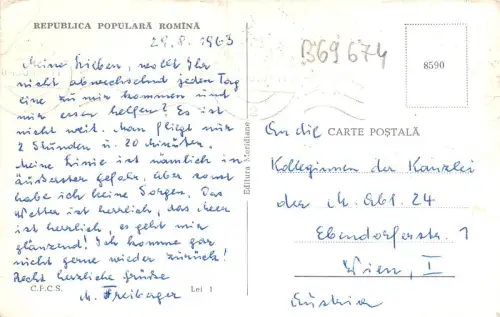 REPUBLICA POPULARĂ ROMÎNĂ
29.8.1963
Meine Lieben, wollt Ihr
nicht abwechselnd jeden Tag
eine zu mir kommen und
mir essen helfen? Es ist
nicht weit. Man fliegt nur
2 Stunden u. 20 Minuten.
Meine Linie ist nämlich in
äusserster Gefahr, aber sonst
habe ich keine Sorgen. Das
Wetter ist herrlich, das Meer
ist herrlich, es geht mir
glänzend! Ich komme gar
nicht gerne wieder zurück!
Recht herzliche Grüsse
M. Freiberger
C.F.C.S. Lei 1
Editura Meridiane
B69674
8590
CARTE POȘTALĂ
An die
Kolleginnen der Kanzlei
der M. Abt. 24
Ebendorferstr. 1
Wien, I
Austria